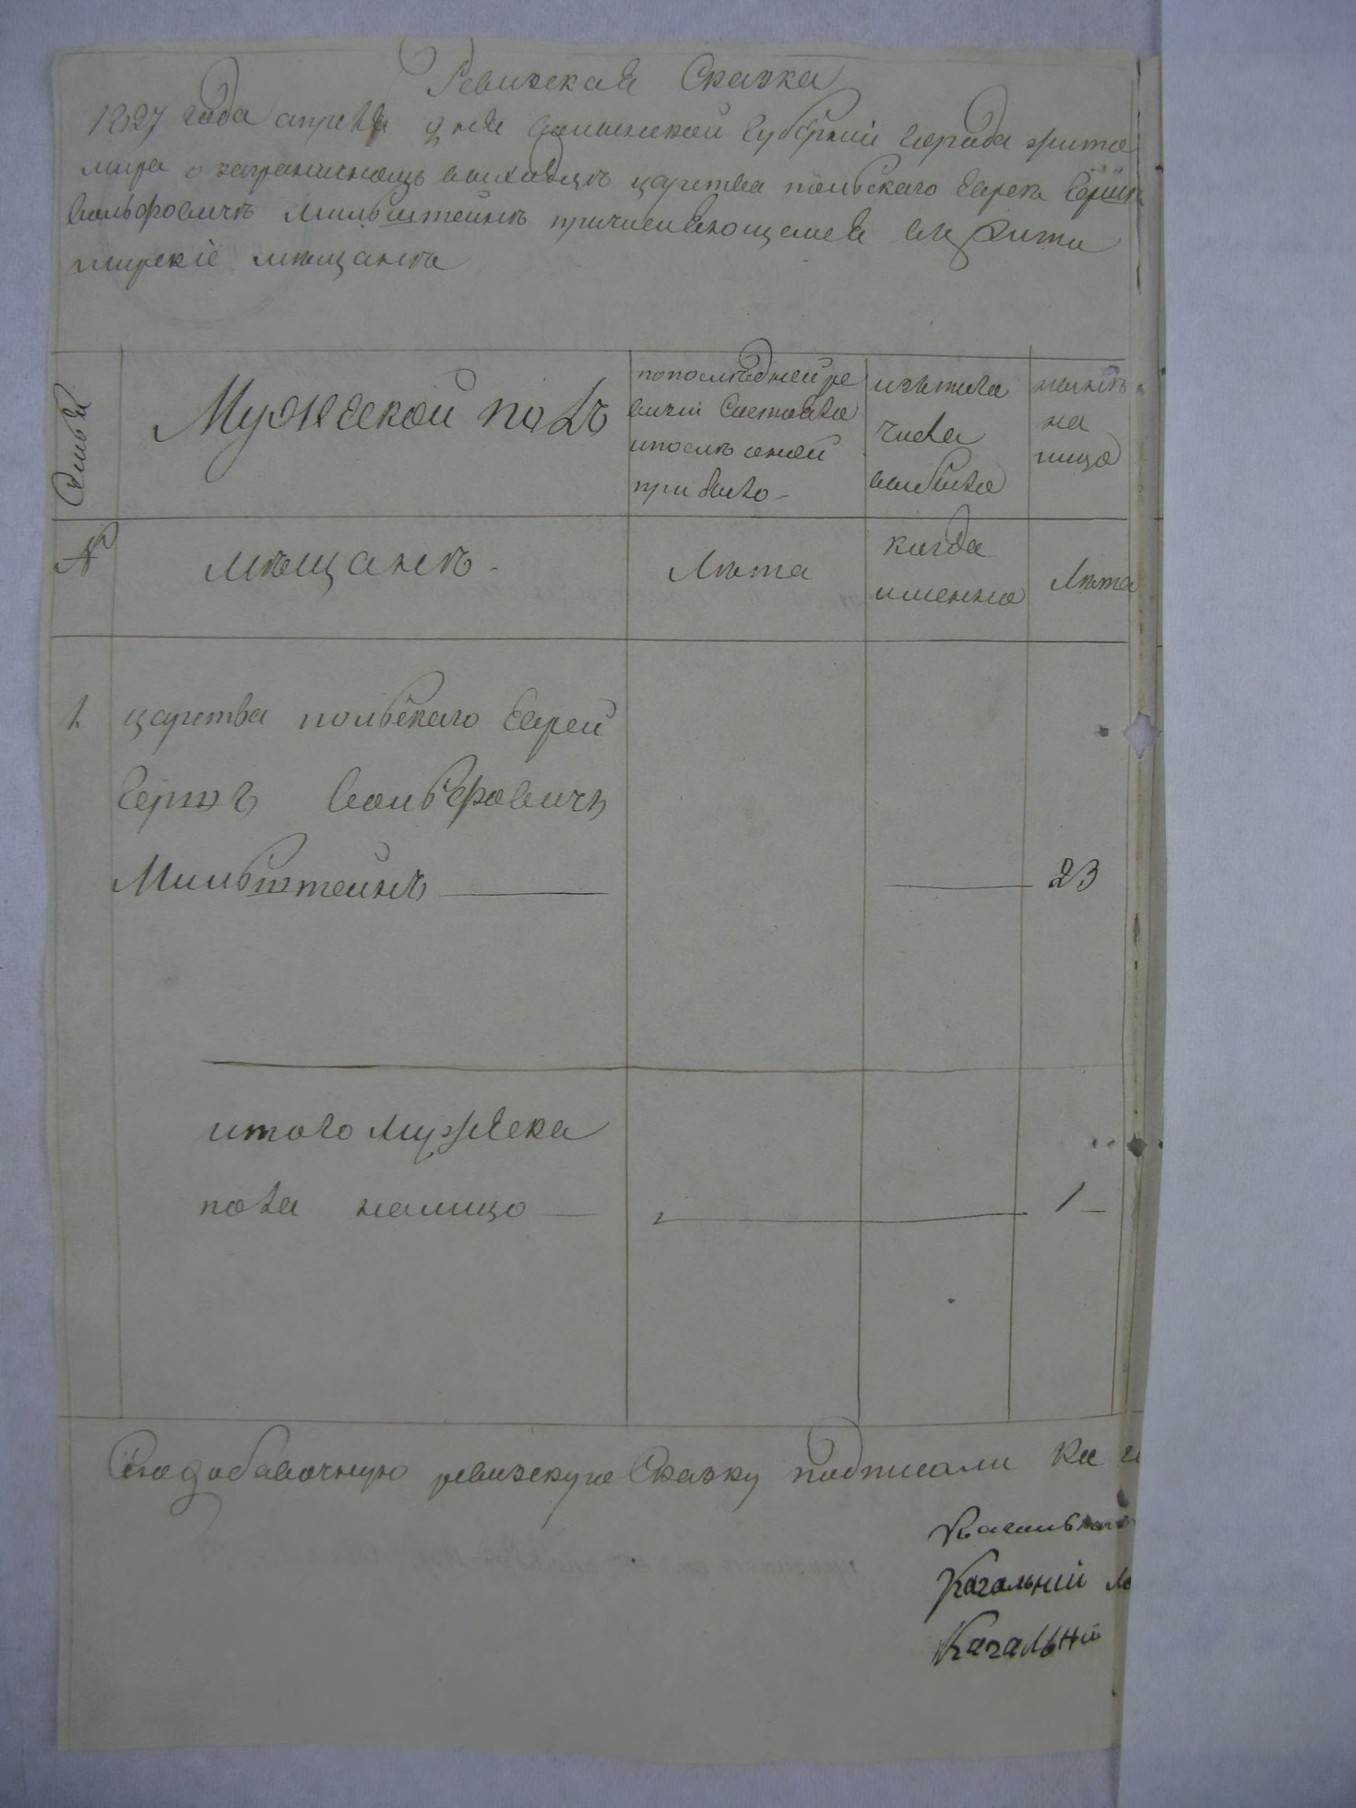 Ревизская Сказка
1827 года апреля дня волынской губернiи города жито
мира о заграничномъ выходцѣ царства польского Еврея
вольфовичѣ Мильштейнѣ причисляющемся въ жито
мирскiе мѣщанѣ
Семьи
Мужеской полъ
по последней ре
визiи состояло
и после оной
прибыло
изъ того
числа
выбыло
нынѣ
на
лицо
№
мѣщанѣ
Лѣта
когда
именно
Лѣта
1
царства польскаго Еврей
Вольфовичъ
Мильштейнъ
23
итого мужеска
пола налицо
1
Сию добавочную ревизскую Сказку подписали
Кагальнiй
Кагальнiй